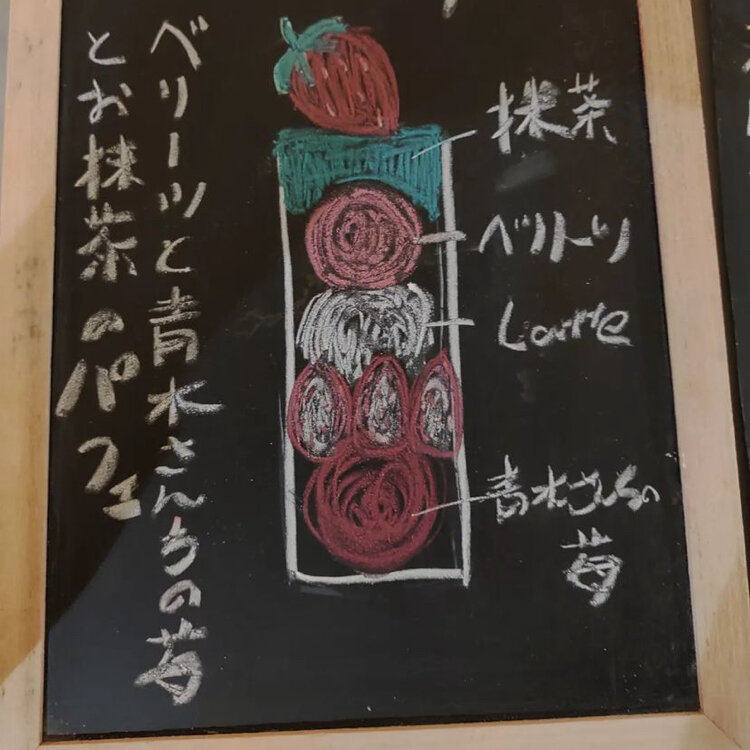 ベリーツと青木さんちの苺
とお抹茶のパフェ
抹茶
ベリーツ
Latte
青木さんちの
苺